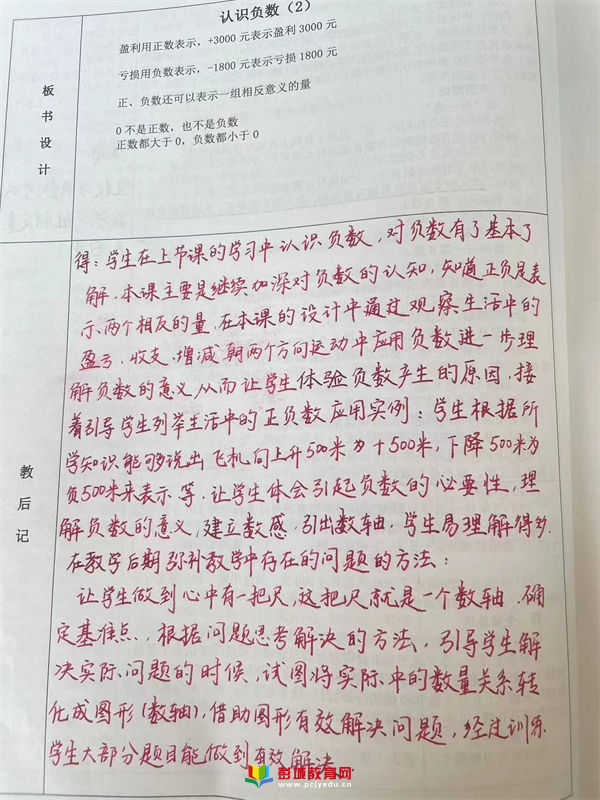 认识负数（2）
板书设计
盈利用正数表示，+3000 元表示盈利 3000 元
亏损用负数表示，-1800 元表示亏损 1800 元
正、负数还可以表示一组相反意义的量
0 不是正数，也不是负数
正数都大于 0，负数都小于 0
教后记
得：学生在上节课的学习中认识负数，对负数有了基本了
解．本课主要是继续加深对负数的认知，知道正负是表
示两个相反的量．在本课的设计中通过观察生活中的
盈亏．收支．增减朝两个方向运动中应用负数进一步理
解负数的意义从而让学生体验负数产生的原因，接
着引导学生列举生活中的正负数应用实例：学生根据所
学知识能够说出飞机向上升500米为+500米，下降500米为
负500米来表示等．让学生体会引起负数的必要性，理
解负数的意义，建立数感．引出数轴．学生易理解得多．
在教学后期弥补教学中存在的问题的方法：
让学生做到心中有一把尺，这把尺就是一个数轴．确
定基准点，根据问题思考解决的方法，引导学生解
决实际问题的时候，试图将实际中的数量关系转
化成图形（数轴），借助图形有效解决问题，经过训练
学生大部分题目能做到有效解决
彭城教育网
www.pcjyedu.cn